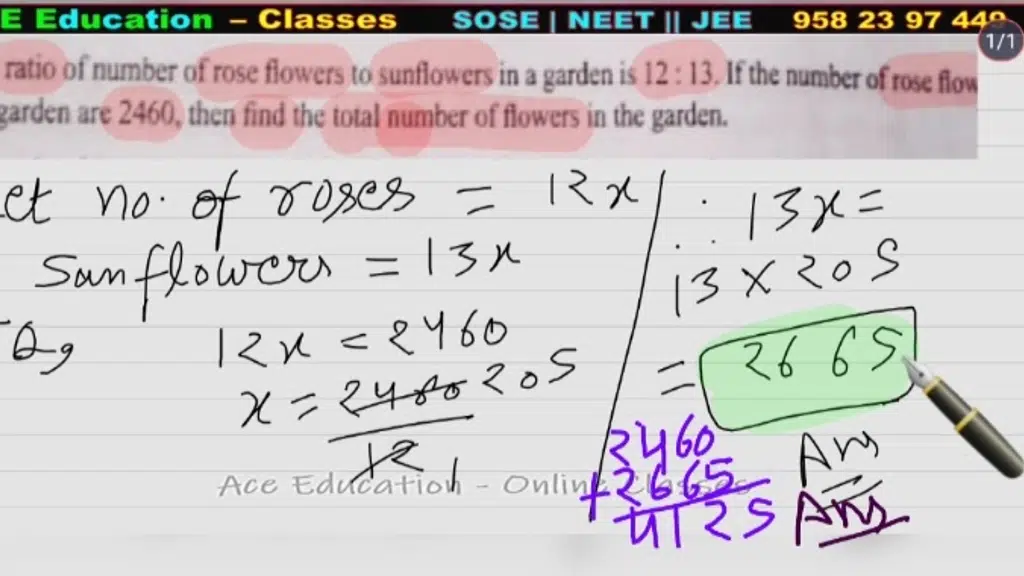 E Education – Classes SOSE | NEET || JEE 958 23 97 449
1/1
ratio of number of rose flowers to sunflowers in a garden is 12 : 13. If the number of rose flow
garden are 2460, then find the total number of flowers in the garden.
et no. of roses = 12x
Sunflowers = 13x
12x = 2460
x = 2460 205
12 1
13x =
13 x 205
= 2665
Ans
2460
+2665
4125 Ans
Ace Education - Online Classes